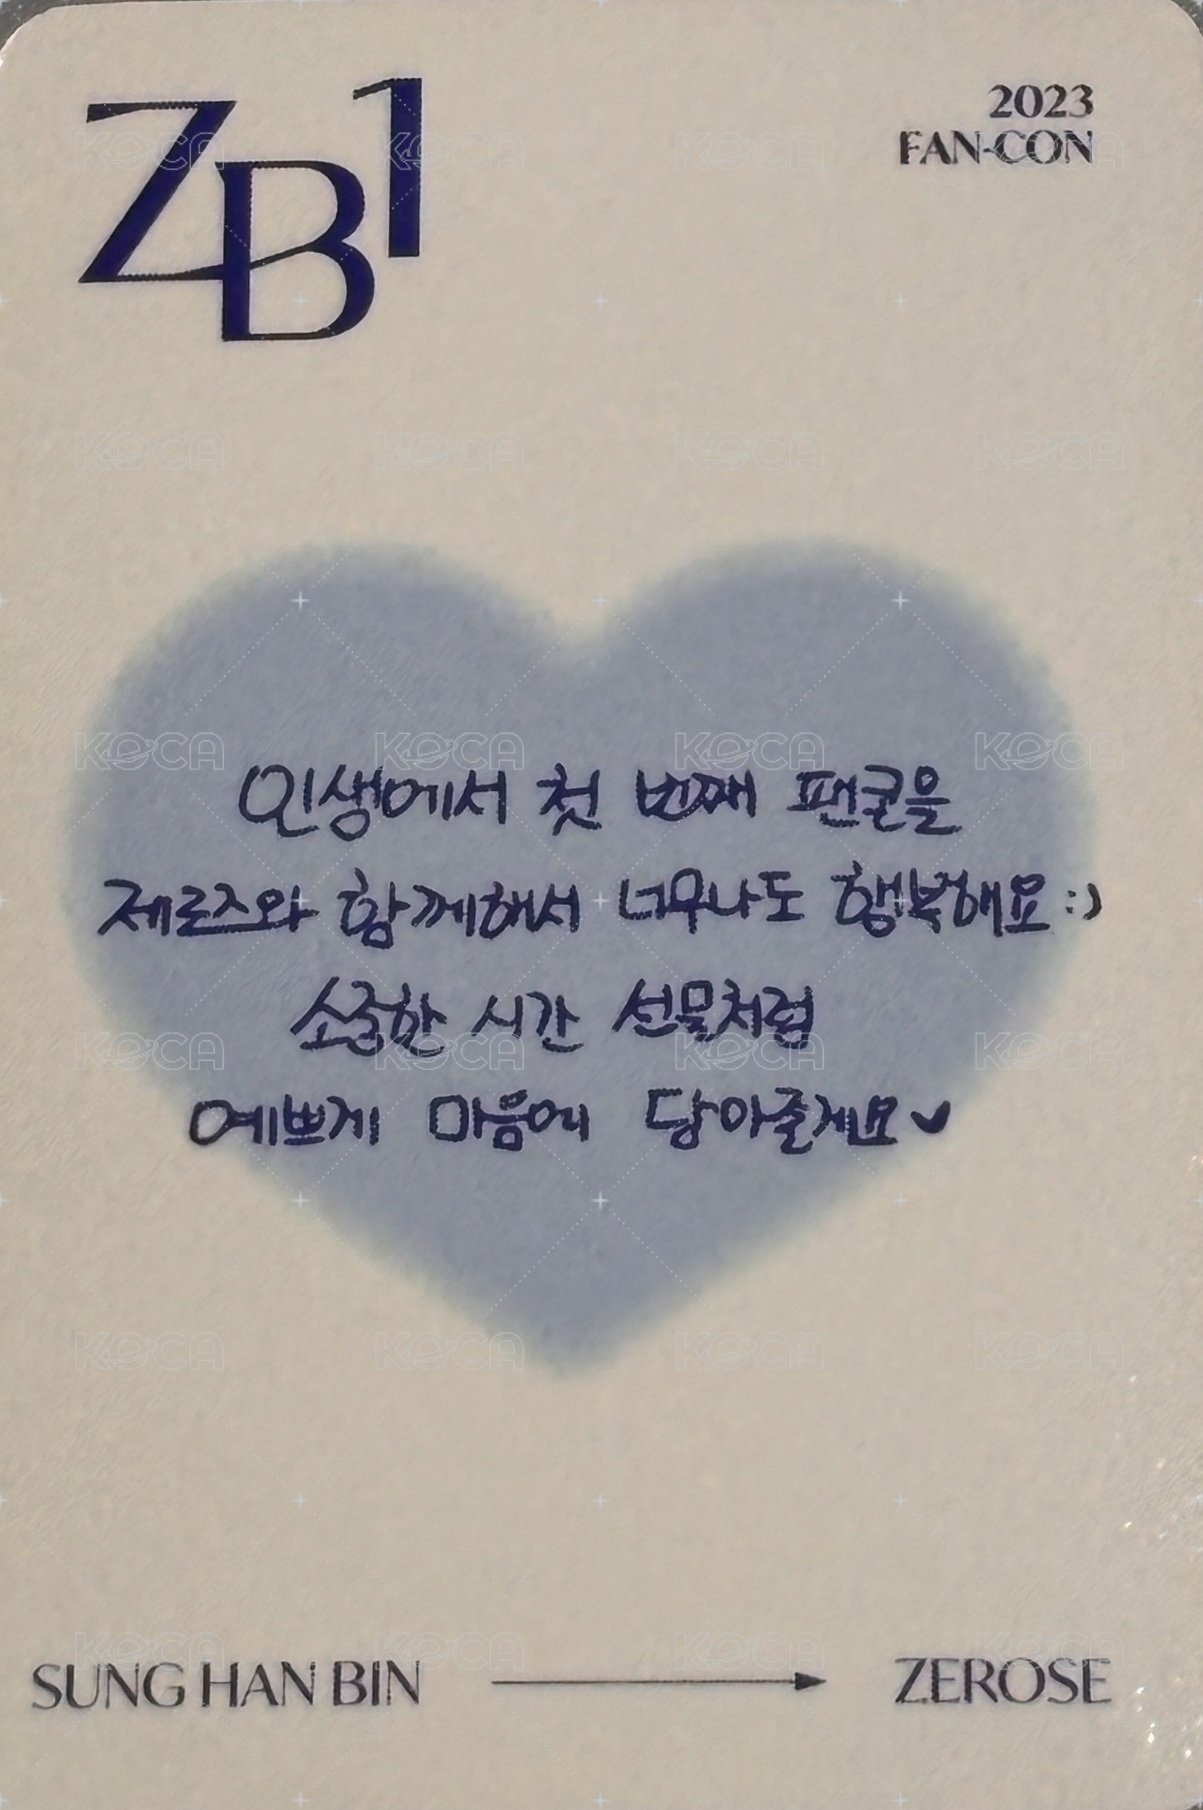 ZB1
2023
FAN-CON
인생에서 첫 번째 팬콘을
제로즈와 함께해서 너무나도 행복해요 :)
소중한 시간 선물처럼
예쁘게 마음에 담아줄게요♥
SUNG HAN BIN → ZEROSE
KOCA